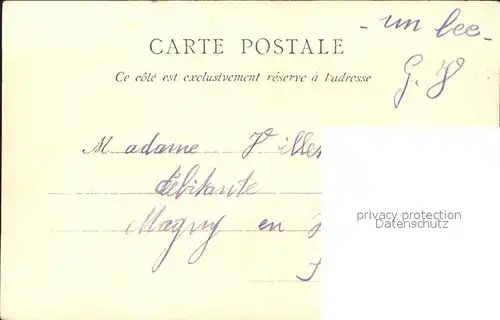 - un bec -
CARTE POSTALE
Ce côté est exclusivement réservé à l'adresse
G. V
Madame Villes
débitante
Magny en
privacy protection
Datenschutz